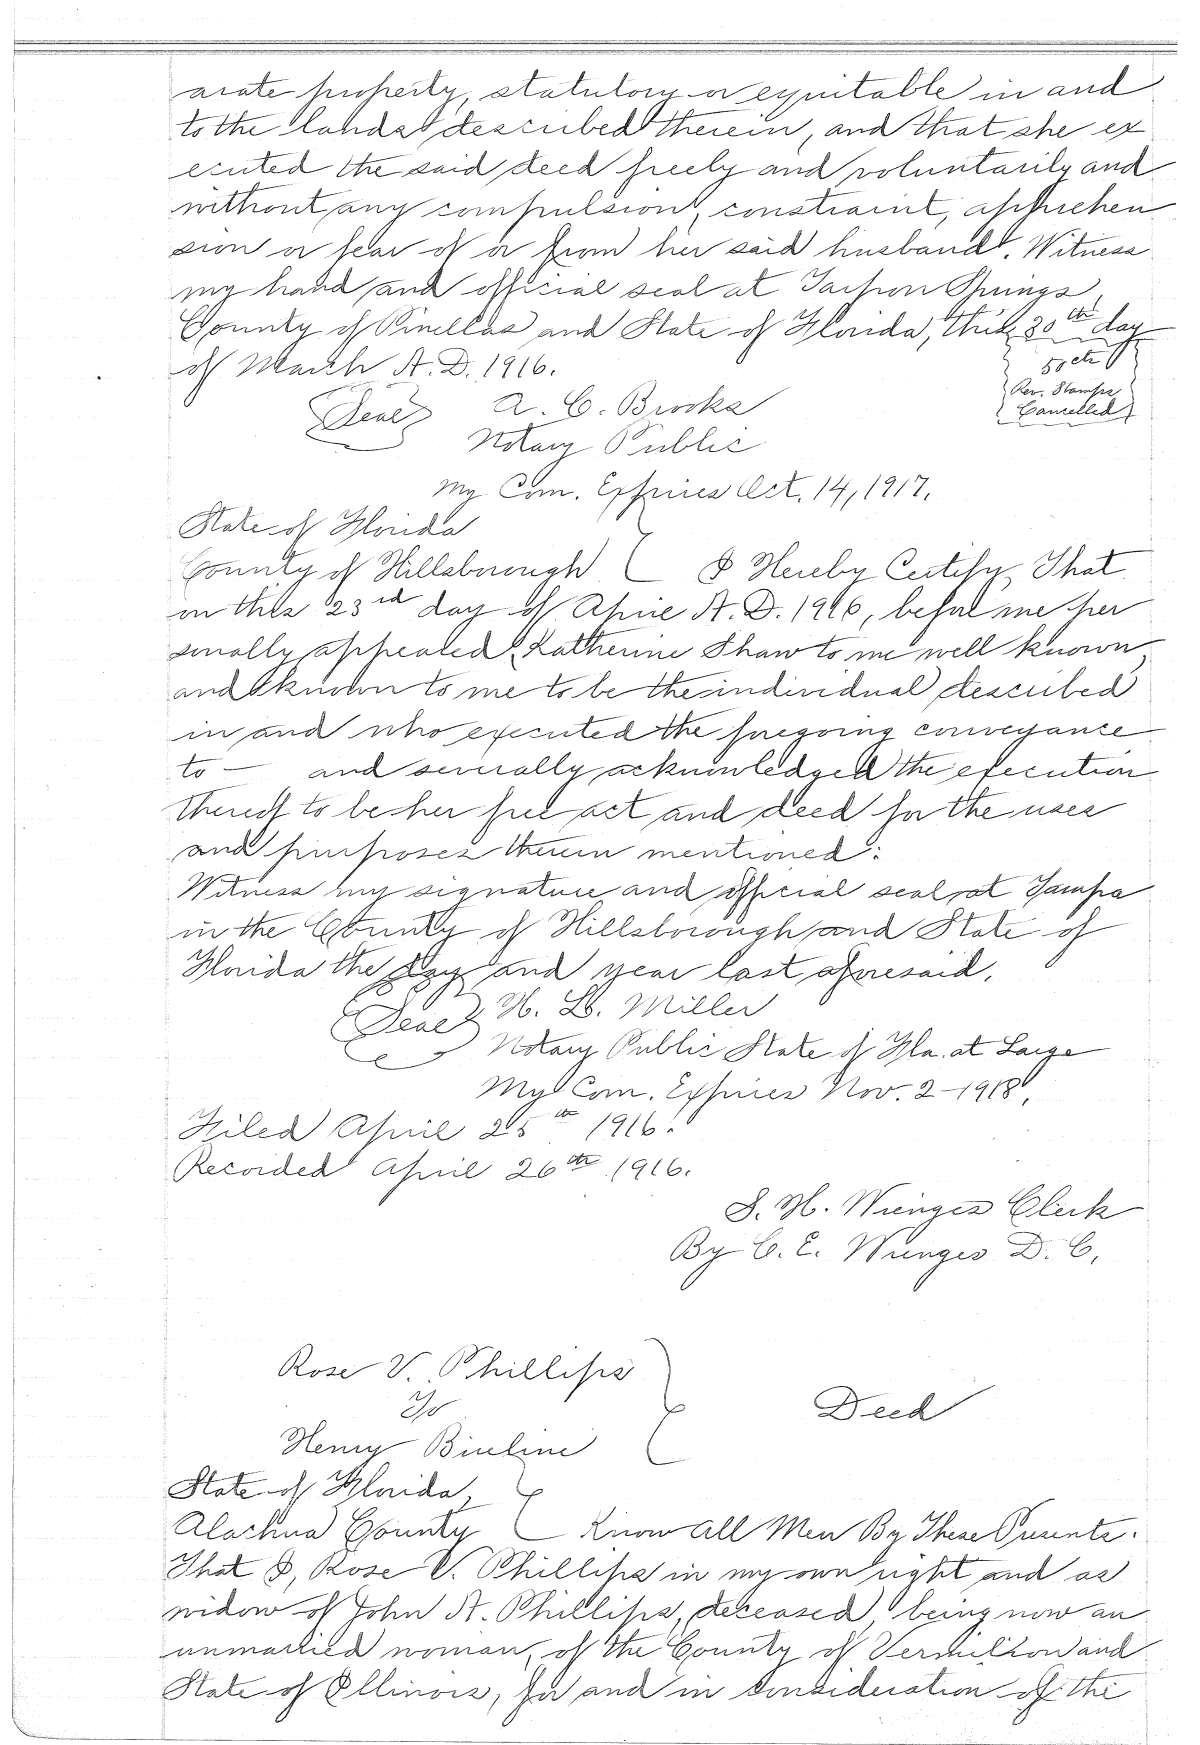 arate property, statutory or equitable in and
to the lands described therein, and that she ex
ecuted the said deed freely and voluntarily and
without any compulsion, constraint, apprehen
sion or fear of or from her said husband. Witness
my hand and official seal at Tarpon Springs,
County of Pinellas and State of Florida, this 30th day
of March A.D. 1916.
50cts
Rev. Stamps
Cancelled
Seal A. C. Brooks
Notary Public
My Com. Expires Oct. 14, 1917.
State of Florida
County of Hillsborough I Hereby Certify, That
on this 23rd day of April A.D. 1916, before me per
sonally appeared, Katherine Shaw to me well known,
and known to me to be the individual described
in and who executed the foregoing conveyance
to — and severally acknowledged the execution
thereof to be her free act and deed for the uses
and purposes therein mentioned:
Witness my signature and official seal at Tampa
in the County of Hillsborough and State of
Florida the day and year last aforesaid.
Seal H. L. Miller
Notary Public State of Fla. at Large
My Com. Expires Nov. 2-1918.
Filed April 25th 1916.
Recorded April 26th 1916.
S. H. Wienges Clerk
By C. E. Wienges D. C.
Rose V. Phillips
To
Deed
Henry Bireline
State of Florida,
Alachua County Know All Men By These Presents.
That I, Rose V. Phillips in my own right and as
widow of John A. Phillips, deceased, being now an
unmarried woman, of the County of Vermilion and
State of Illinois, for and in consideration of the